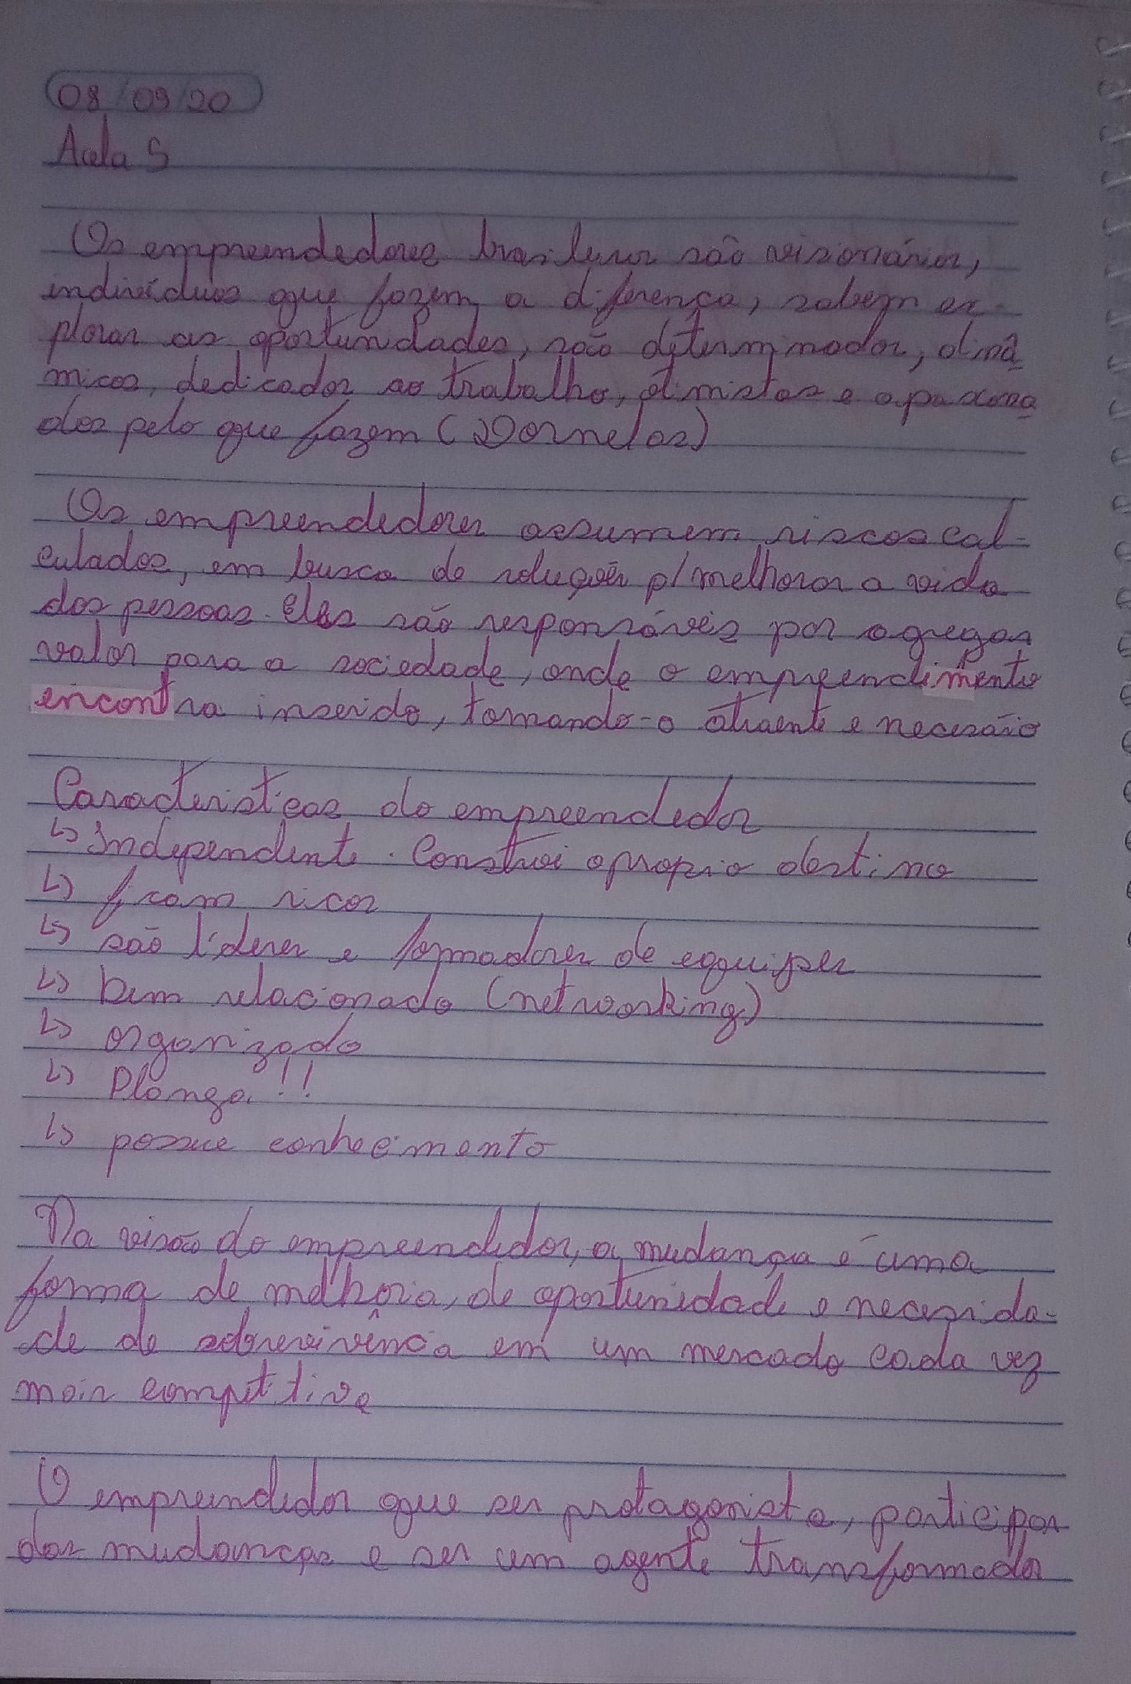 08/09/20
Aula 5
Os empreendedores brasileiros são visionários,
indivíduos que fazem a diferença, sabem ex-
plorar as oportunidades, são determinados, dinâ
micos, dedicados ao trabalho, otimistas e apaixona
dos pelo que fazem (Dornelas)
Os empreendedores assumem riscos cal-
culados, em busca de soluções p/ melhorar a vida
das pessoas. Eles são responsáveis por agregar
valor para a sociedade, onde o empreendimento
encontra inserido, tornando-o atraente e necesário
Caracteristicas do empreendedor
↳ Independente. Constroi o propio destino
↳ ficam ricos
↳ são líderes e formadores de equipes
↳ bem relacionado (networking)
↳ organizado
↳ Planeja!!
↳ possue conhecimento
Na visão do empreendedor, a mudança é uma
forma de melhoria, de oportunidade e necessida-
de de sobrevivência em um mercado cada vez
mais competitivo
O empreendedor que ser protagonista, participar
das mudanças e ser um agente transformador